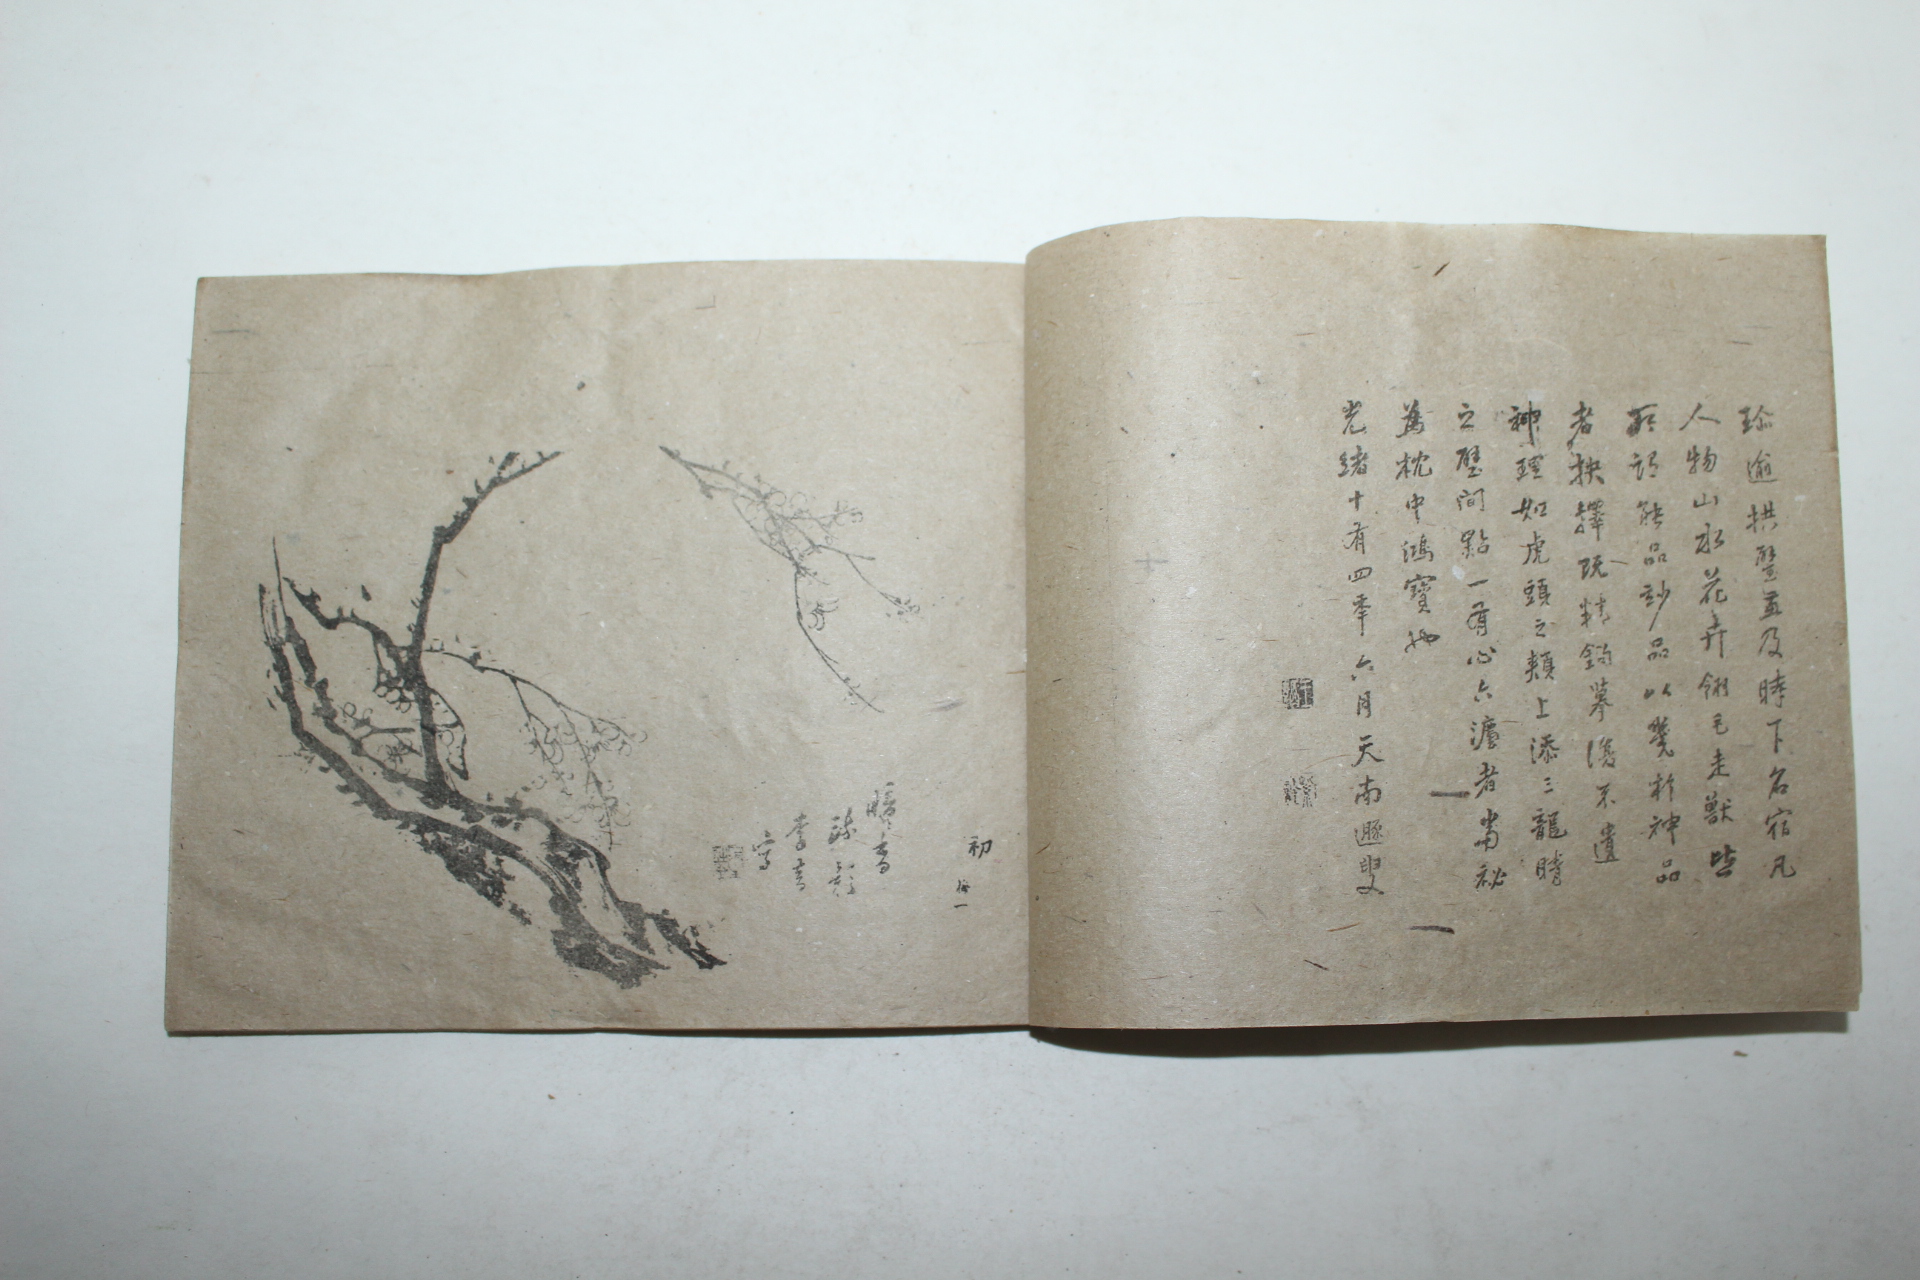 珍逾拱璧並及時下名宿凡
人物山水花卉翎毛走獸皆
能品妙品以幾於神品
者抉擇既精鉤摹復不遺
神理如虎頭之頰上添三龍睛
之壁間點一有心六灋者當祕
為枕中鴻寶也
光緒十有四年六月天南遯叟
初
梅一
暗香
疎影
李
寫